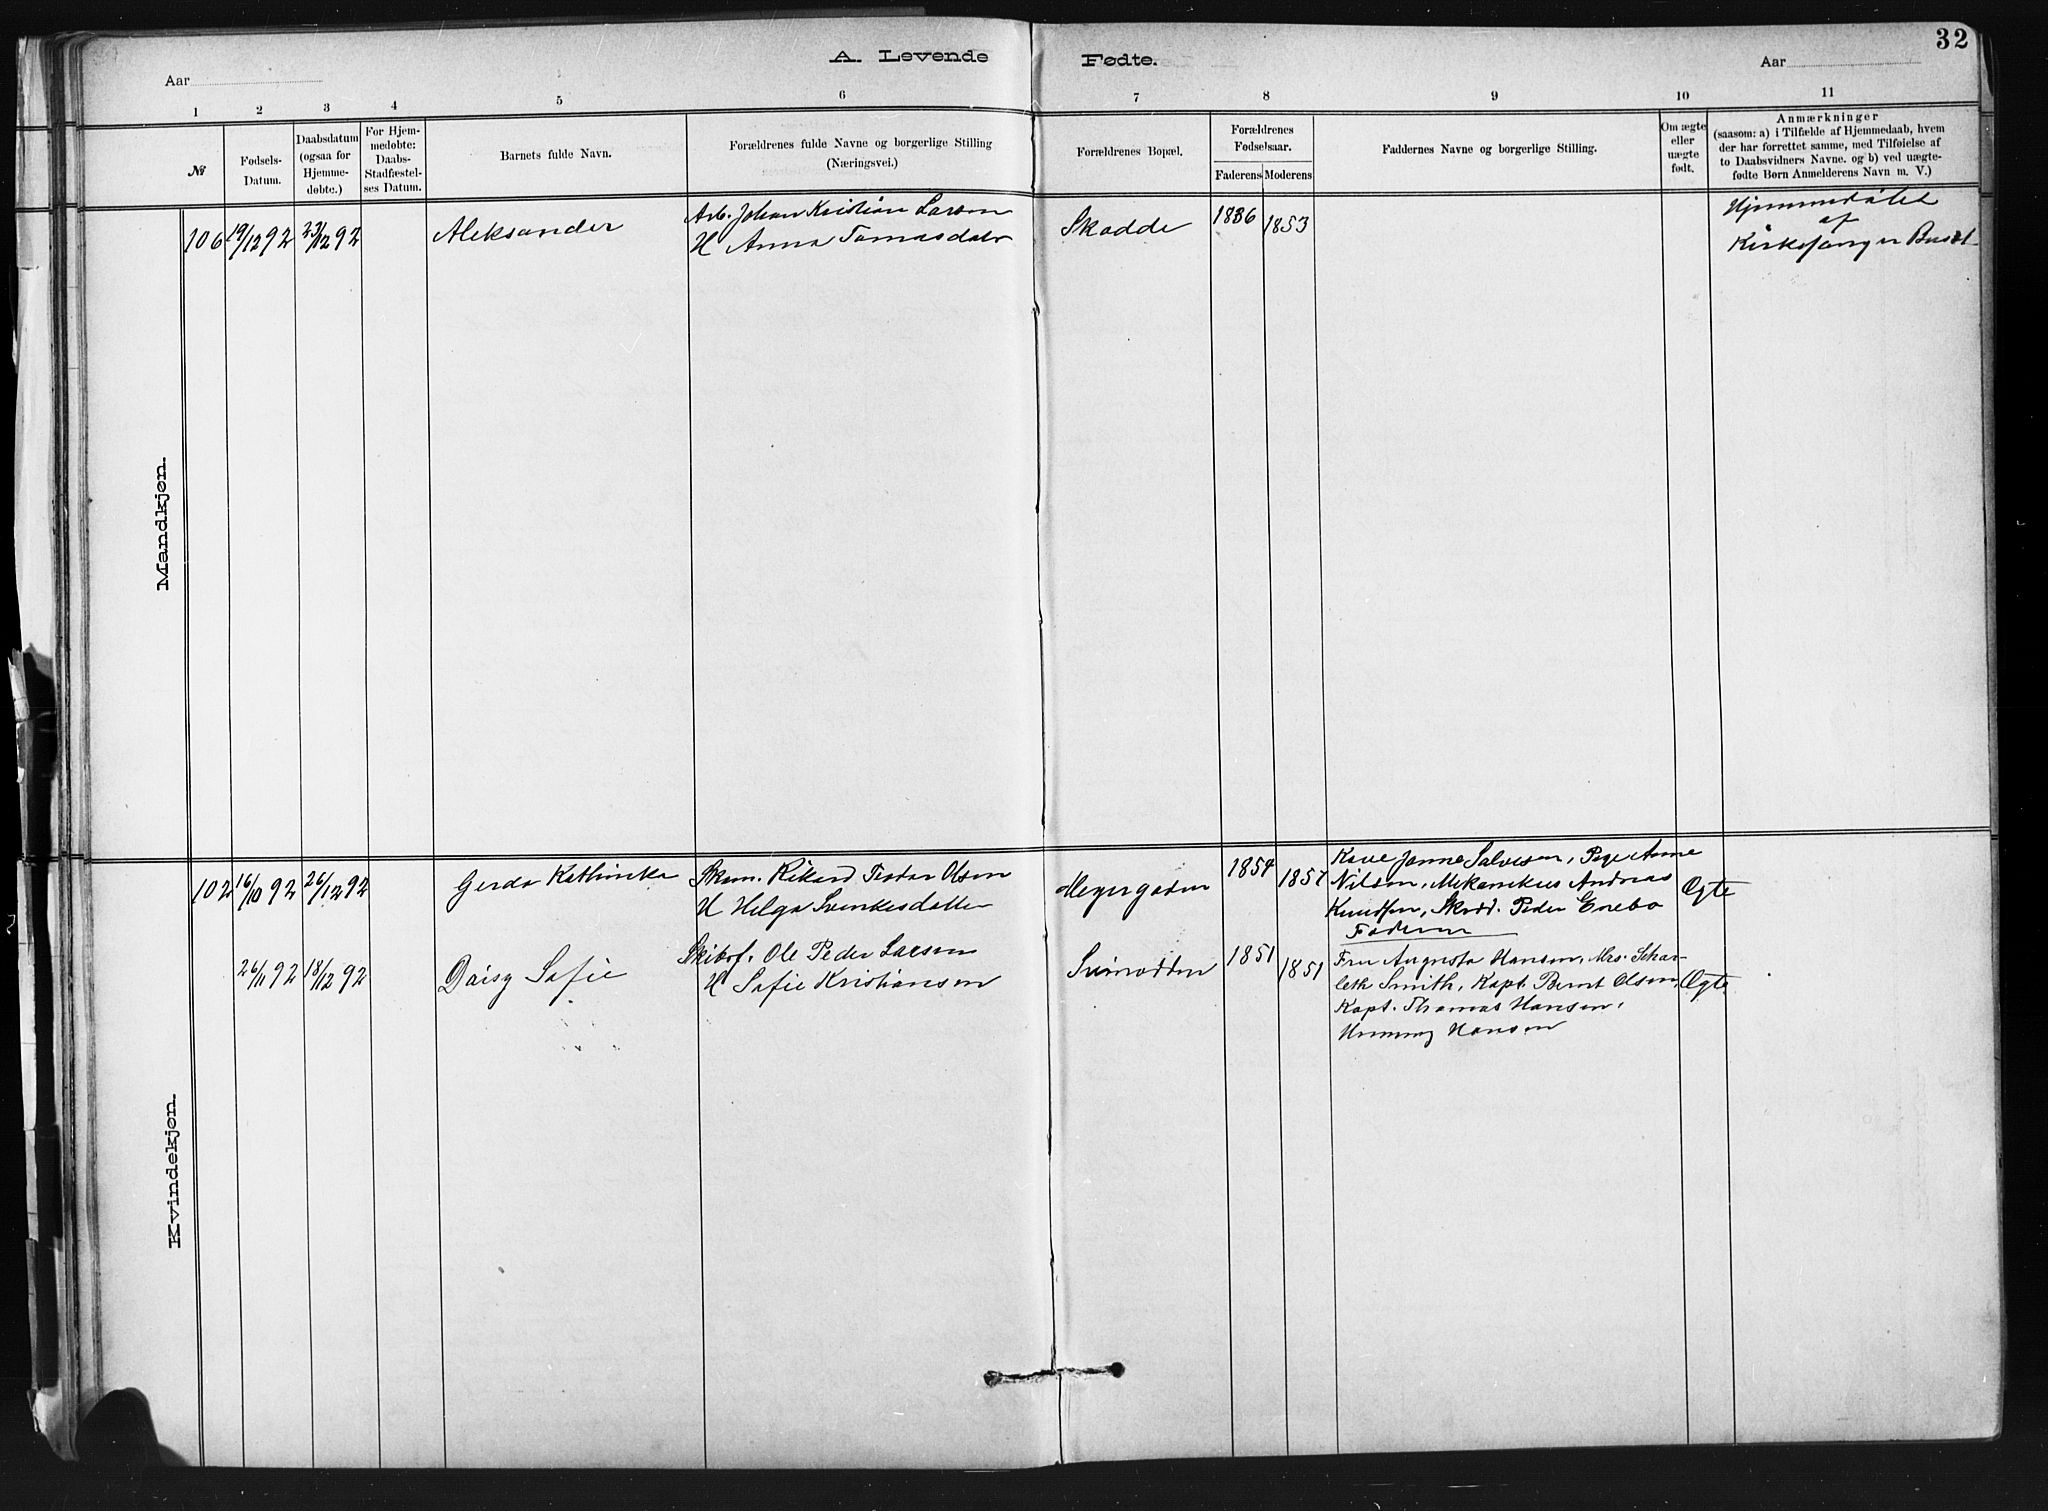 32
A. Levende Fødte.
Aar
Aar
1 2 3 4 5 6 7 8 9 10 11
№
Fødsels-
Datum.
Daabsdatum
(ogsaa for
Hjemme-
døbte.)
For Hjem-
medøbte:
Daabs-
Stadfæstel-
ses Datum.
Barnets fulde Navn.
Forældrenes fulde Navne og borgerlige Stilling
(Næringsvei.)
Forældrenes Bopæl.
Forældrenes
Fødselsaar.
Faderens Moderens
Faddernes Navne og borgerlige Stilling.
Om ægte
eller
uægte
født.
Anmærkninger
(saasom: a) i Tilfælde af Hjemmedaab, hvem
der har forrettet samme, med Tilføielse af
to Daabsvidners Navne. og b) ved uægte-
fødte Børn Anmelderens Navn m. V.)
Mandkjøn.
106 19/12 92 23/12 92 Aleksander
Arb. Johan Kristian Larsen
H Anna Tomasdatr
Skodde 1836 1853
Hjemmedøbt
af
Kirkesanger
Kvindekjøn.
102 16/10 92 26/12 92 Gerda Kathinka
Skom. Rikard Teodor Olsen
H Helga
Meyergaden 1854 1857
Kone Janna Salvesen, Pige Anne
Nilsen, Mekanikus Andreas
Knudsen, Skrædd. Peder Enebo
Faderen
Ægte
26/11 92 18/12 92 Daisy Sofie
Skibsf. Ole Peder Larsen
H Sofie Kristiansen
1851 1851
Fru Augusta Hansen, Mrs. Schar-
leth Smith, Kapt. Bernt Olsen,
Kapt. Thomas Hansen,
Henning Hansen
Ægte